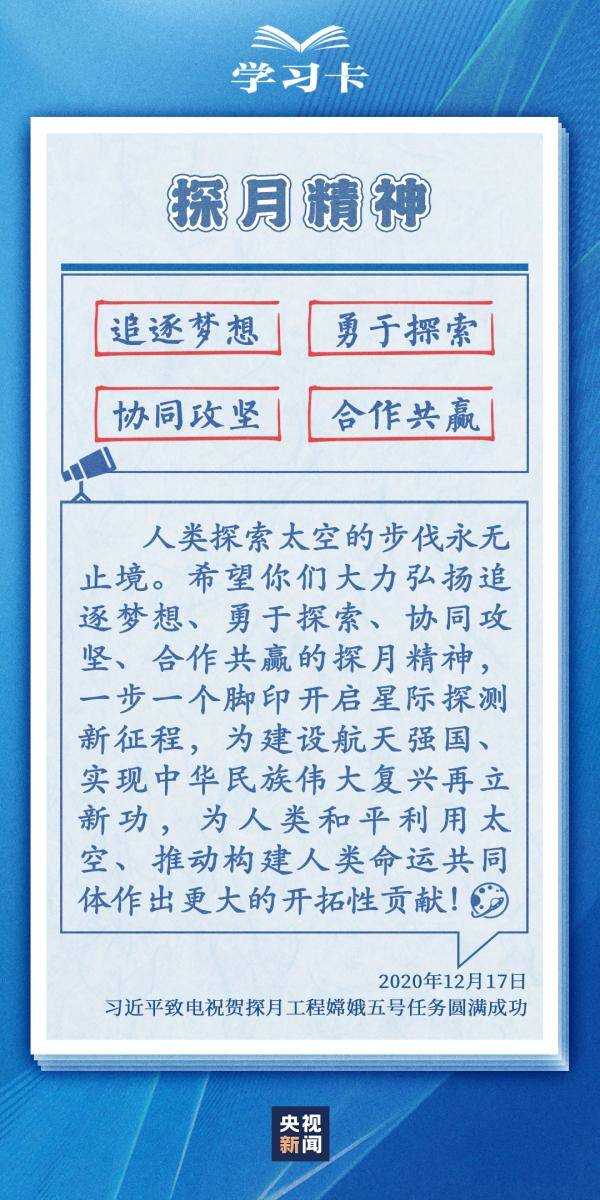 学习卡
探月精神
追逐梦想 勇于探索
协同攻坚 合作共赢
人类探索太空的步伐永无
止境。希望你们大力弘扬追
逐梦想、勇于探索、协同攻
坚、合作共赢的探月精神，
一步一个脚印开启星际探测
新征程，为建设航天强国、
实现中华民族伟大复兴再立
新功，为人类和平利用太
空、推动构建人类命运共同
体作出更大的开拓性贡献！
2020年12月17日
习近平致电祝贺探月工程嫦娥五号任务圆满成功
央视
新闻